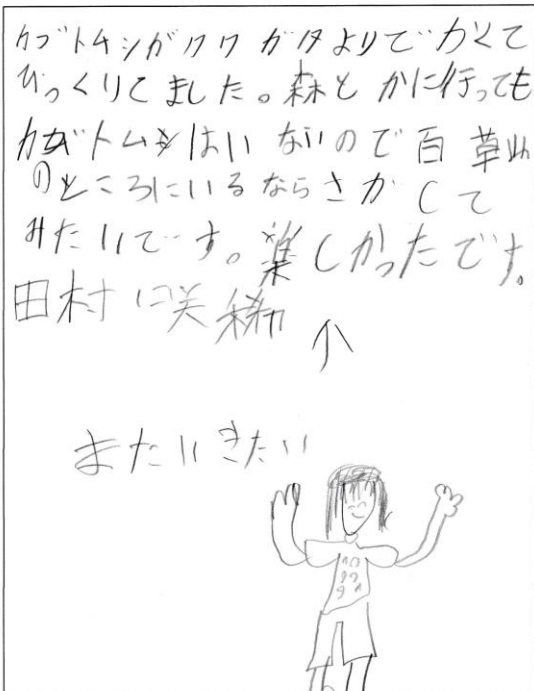 カブトムシがクワガタよりでかくて
びっくりてました。森とかに行っても
カブトムシはいないので百草山
のところにいるならさがして
みたいです。楽しかったです。
田村
またいきたい